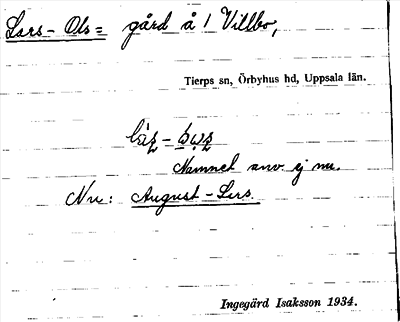 Lars-Ols= gård å 1 Villbo,
Tierps sn, Örbyhus hd, Uppsala län.
Namnet anv. ej nu.
Nu: August-Lars.
Ingegärd Isaksson 1934.